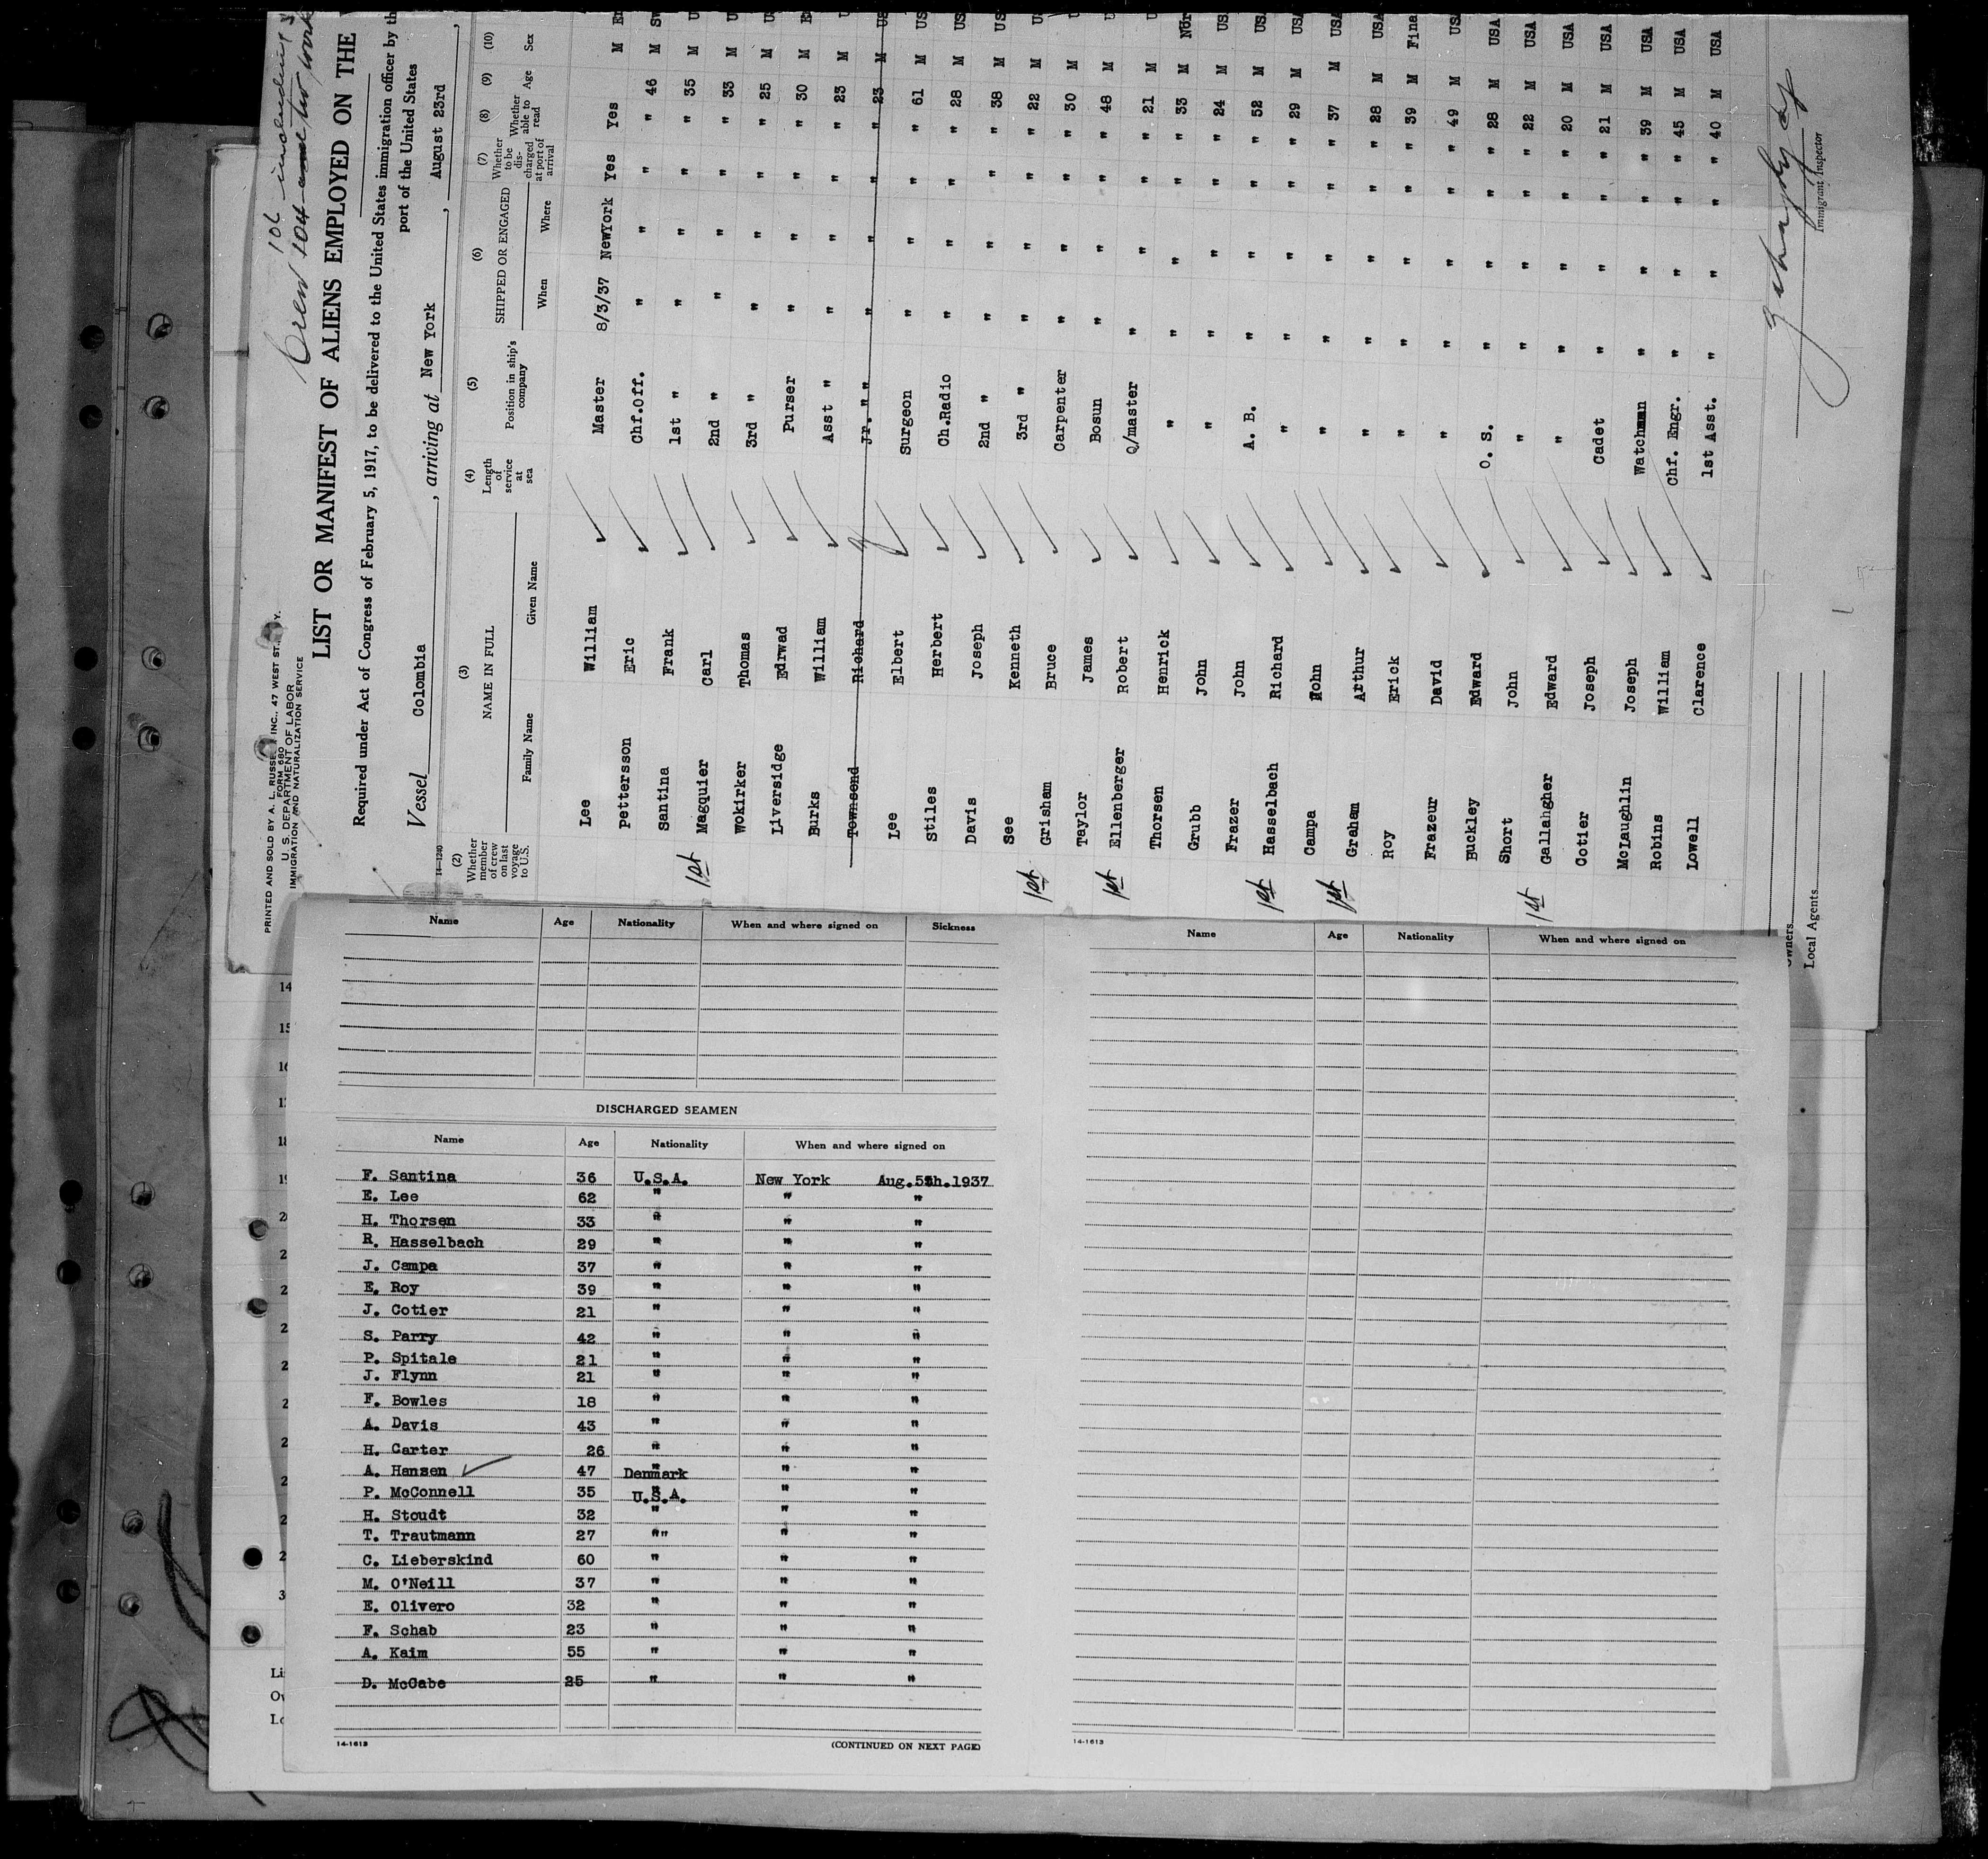 Crew 104
106 including
PRINTED AND SOLD BY A. L. RUSSELL INC., 47 WEST ST., N.Y.
FORM 680
U. S. DEPARTMENT OF LABOR
IMMIGRATION AND NATURALIZATION SERVICE
LIST OR MANIFEST OF ALIENS EMPLOYED ON THE
Required under Act of Congress of February 5, 1917, to be delivered to the United States immigration officer by th
port of the United States
Vessel Colombia, arriving at New York, August 23rd,
14-1240
(2) (3) (4) (5) (6) (7) (8) (9) (10)
Whether member of crew on last voyage to U.S. NAME IN FULL Family Name Given Name Length of service at sea Position in ship's company SHIPPED OR ENGAGED When Where Whether to be discharged at port of arrival Whether able to read Age Sex
Lee William Master 8/3/37 NewYork Yes Yes M
Pettersson Eric Chf.Off. " " " " 46 M Sw
Santina Frank 1st " " " " " 35 M U
1st Magquier Carl 2nd " " " " " 33 M U
Wokirker Thomas 3rd " " " " " 25 M US
Liversidge Edrwad Purser " " " " 30 M E
Burks William Asst " " " " " 23 M U
Townsend Richard Jr. " " " " " " 23 M US
Lee Elbert Surgeon " " " " 61 M US
Stiles Herbert Ch.Radio " " " " 28 M US
Davis Joseph 2nd " " " " " 38 M US
See Kenneth 3rd " " " " " 22 M U
1st Grisham Bruce Carpenter " " " " 30 M U
Taylor James Bosun " " " " 48 M U
1st Ellenberger Robert Q/master " " " " 21 M U
Thorsen Henrick " " " " " 33 M Nor
Grubb John " " " " " 24 M US
Frazer John A. B. " " " " 52 M USA
1st Hasselbach Richard " " " " " 29 M USA
Campa John " " " " " 37 M USA
1st Graham Arthur " " " " " 28 M USA
Roy Erick " " " " " 39 M Fina
Frazeur David " " " " " 49 M USA
Buckley Edward O. S. " " " " 28 M USA
Short John " " " " " 22 M USA
1st Gallahagher Edward " " " " " 20 M USA
Cotier Joseph Cadet " " " " 21 M USA
McLaughlin Joseph Watchman " " " " 39 M USA
Robins William Chf. Engr. " " " " 45 M USA
Lowell Clarence 1st Asst. " " " " 40 M USA
Owners
Local Agents
Immigrant Inspector
Name Age Nationality When and where signed on Sickness
Name Age Nationality When and where signed on
DISCHARGED SEAMEN
Name Age Nationality When and where signed on
F. Santina 36 U.S.A. New York Aug.5th.1937
E. Lee 62 " " "
H. Thorsen 33 " " "
R. Hasselbach 29 " " "
J. Campa 37 " " "
E. Roy 39 " " "
J. Cotier 21 " " "
S. Parry 42 " " "
P. Spitale 21 " " "
J. Flynn 21 " " "
F. Bowles 18 " " "
A. Davis 43 " " "
H. Carter 26 " " "
A. Hansen 47 Denmark " "
P. McConnell 35 U.S.A. " "
H. Stoudt 32 " " "
T. Trautmann 27 "" " "
C. Lieberskind 60 " " "
M. O'Neill 37 " " "
E. Olivero 32 " " "
F. Schab 23 " " "
A. Kaim 55 " " "
D. McCabe 25 " " "
14-1613
(CONTINUED ON NEXT PAGE)
14-1613